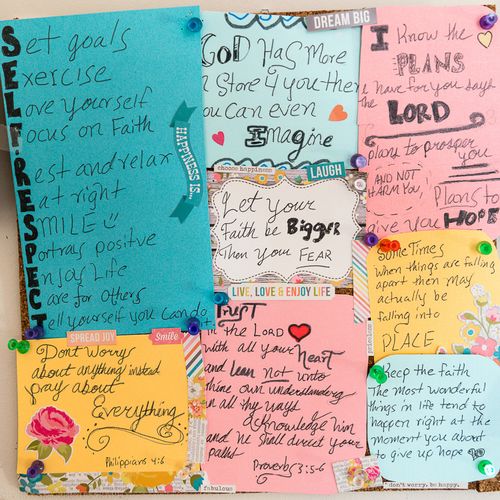 Set goals
Exercise
Love yourself
Focus on Faith
Rest and relax
Eat right
SMILE
Portrays positve
Enjoy Life
Care for Others
Tell yourself you can do
HAPPINESS IS...
DREAM BIG
GOD HAS More
in Store 4 you then
you Can even
Imagine
I Know the
PLANS
I have for you says
the LORD
plans to prosper
you
AND NOT
HARM YOU,
Plans to
give you HOPE
choose happiness
LAUGH
Let your
Faith be Bigger
Then your FEAR
LIVE, LOVE & ENJOY LIFE
Trust
in the LORD
with all your Heart
and lean not unto
thine own understanding
in all thy ways
acknowledge him
and he shall direct your
paths
Proverbs 3:5-6
fabulous
SomeTimes
when things are falling
apart then may
actually be
falling into
PLACE
Keep the faith
The most wonderful
things in life tend to
happen right at the
moment you about
to give up hope
don't worry. be happy.
SPREAD JOY
Smile
Don't Worry
about anything instead
pray about
Everything
Philippians 4:6